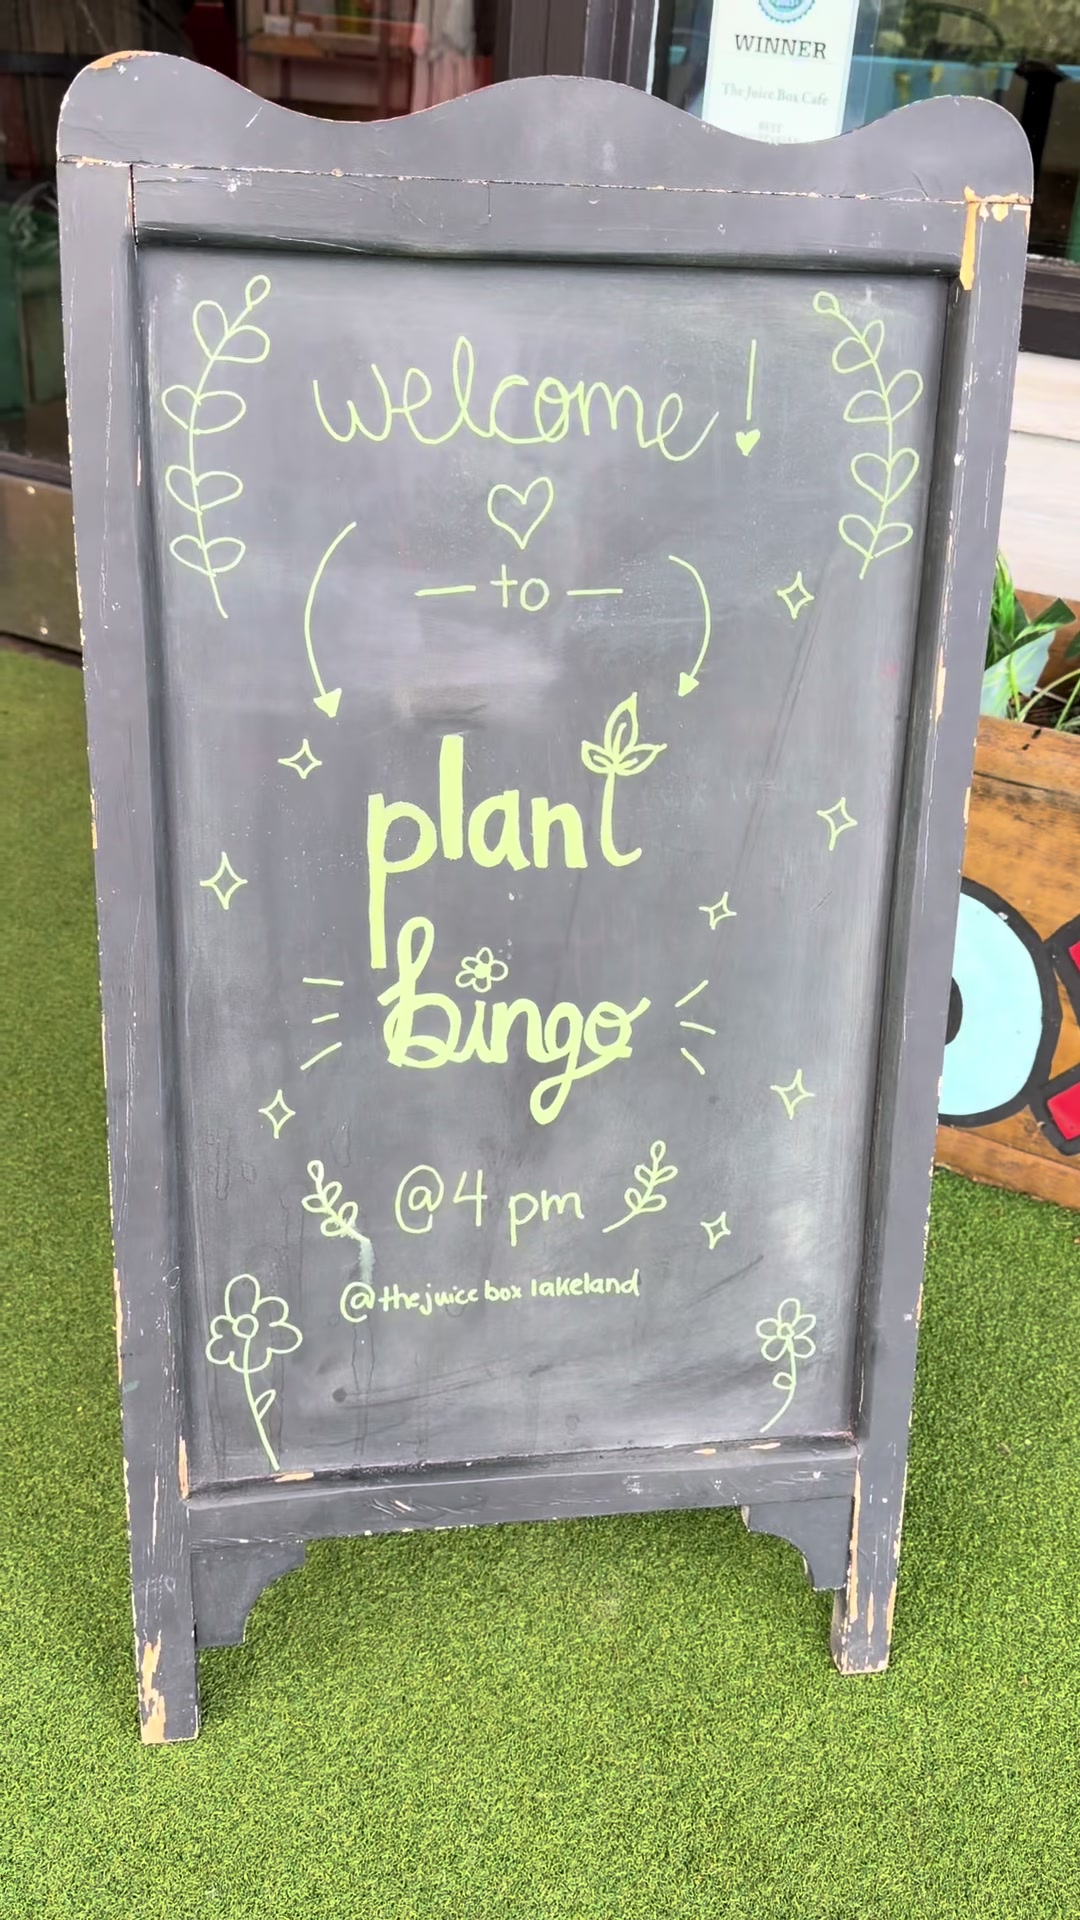 WINNER
The Juice Box Cafe
BEST
welcome!
to
plant
bingo
@4 pm
@thejuice box lakeland